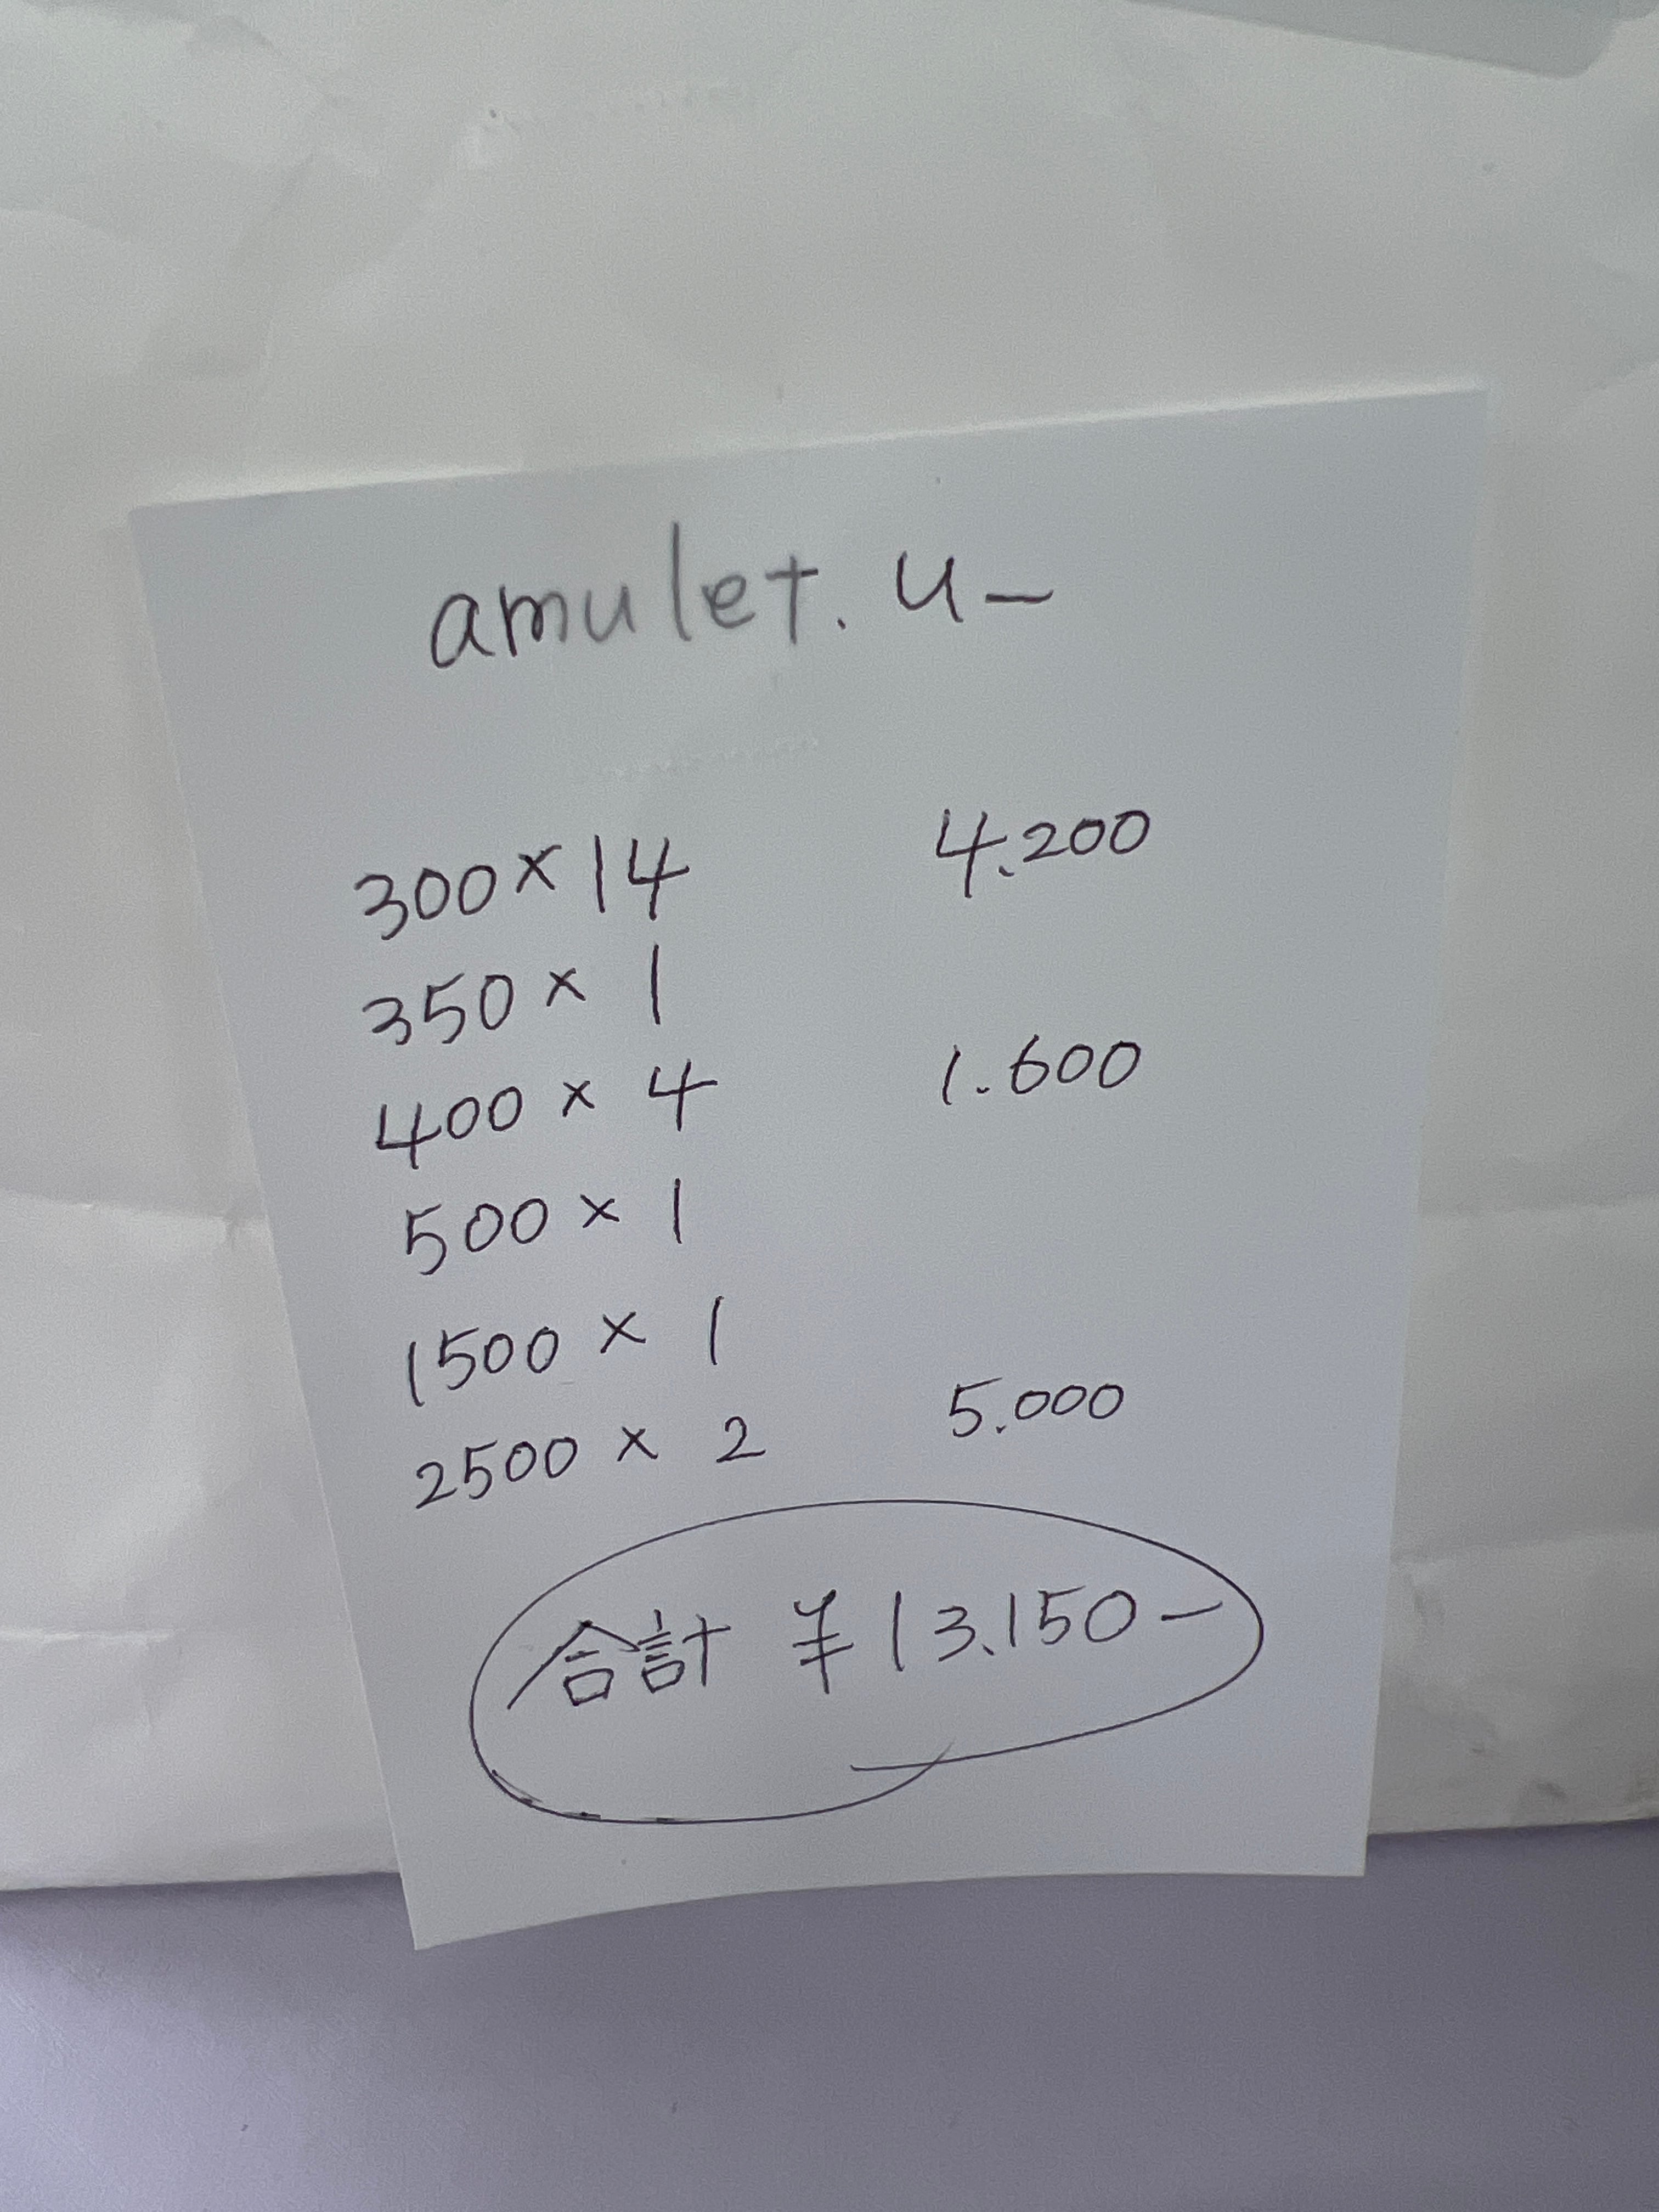 amulet. u-
300 × 14 4.200
350 × 1
400 × 4 1.600
500 × 1
1500 × 1
2500 × 2 5.000
合計 ¥13.150-